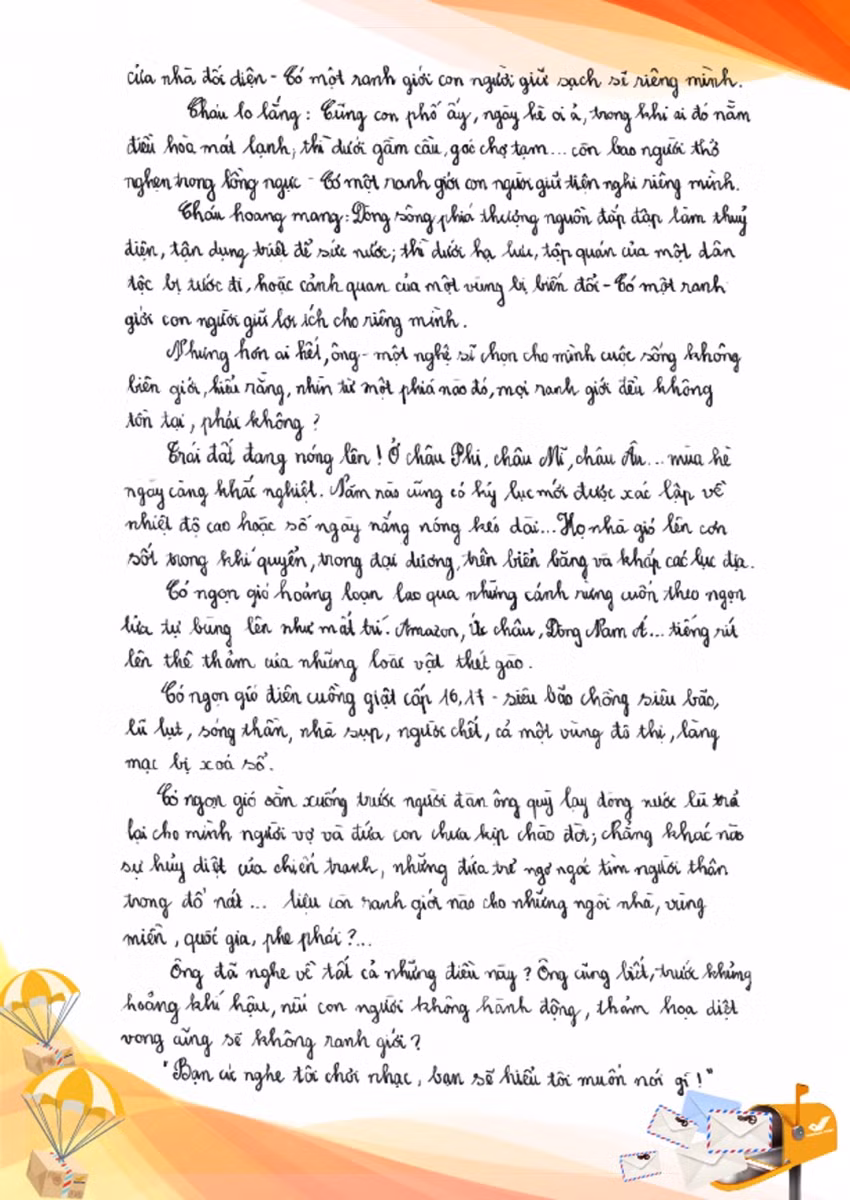 cửa nhà đối diện - Có một ranh giới con người giữ sạch sẽ riêng mình.
Cháu lo lắng: Cũng con phố ấy, ngày hè oi ả, trong khi ai đó nằm
điều hòa mát lạnh, thì dưới gầm cầu, góc chợ tạm... còn bao người thở
nghẹn trong lồng ngực - Có một ranh giới con người giữ tiện nghi riêng mình.
Cháu hoang mang: Dòng sông phía thượng nguồn đắp đập làm thuỷ
điện, tận dụng triệt để sức nước; thì dưới hạ lưu, tập quán của một dân
tộc bị tước đi, hoặc cảnh quan của một vùng bị biến đổi - Có một ranh
giới con người giữ lợi ích cho riêng mình.
Nhưng hơn ai hết, ông - một nghệ sĩ chọn cho mình cuộc sống không
biên giới, hiểu rằng, nhìn từ một phía nào đó, mọi ranh giới đều không
tồn tại, phải không?
Trái đất đang nóng lên! Ở châu Phi, châu Mĩ, châu Âu... mùa hè
ngày càng khắc nghiệt. Năm nào cũng có kỷ lục mới được xác lập về
nhiệt độ cao hoặc số ngày nắng nóng kéo dài... Họ nhà gió lên cơn
sốt trong khí quyển, trong đại dương, trên biển băng và khắp các lục địa.
Có ngọn gió hoảng loạn lao qua những cánh rừng cuốn theo ngọn
lửa tự bùng lên như mất trí. Amazon, Úc châu, Đông Nam Á... tiếng rít
lên thê thảm của những loài vật thét gào.
Có ngọn gió điên cuồng giật cấp 16, 17 - siêu bão chồng siêu bão,
lũ lụt, sóng thần, nhà sụp, người chết, cả một vùng đô thị, làng
mạc bị xoá sổ.
Có ngọn gió sần xuống trước người đàn ông quỳ lạy dòng nước lũ trả
lại cho mình người vợ và đứa con chưa kịp chào đời; chẳng khác nào
sự hủy diệt của chiến tranh, những đứa trẻ ngơ ngác tìm người thân
trong đổ nát ... liệu còn ranh giới nào cho những ngôi nhà, vùng
miền, quốc gia, phe phái?...
Ông đã nghe về tất cả những điều này? Ông cũng biết, trước khủng
hoảng khí hậu, nếu con người không hành động, thảm họa diệt
vong cũng sẽ không ranh giới?
"Bạn cứ nghe tôi chơi nhạc, bạn sẽ hiểu tôi muốn nói gì!"